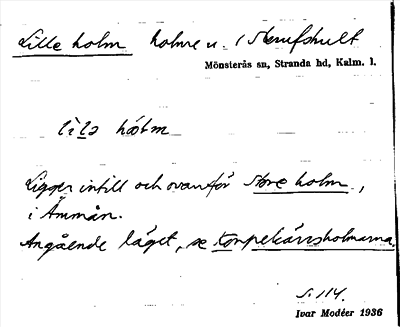 Lille holm holme u. / Skrufshult
Mönsterås sn, Stranda hd, Kalm. l.
lìlə hɔ́lm
Ligger intill och ovanför Store holm,
i Ämmån.
Angående läget, se Torpekärrsholmarna,
s. 114.
Ivar Modéer 1936